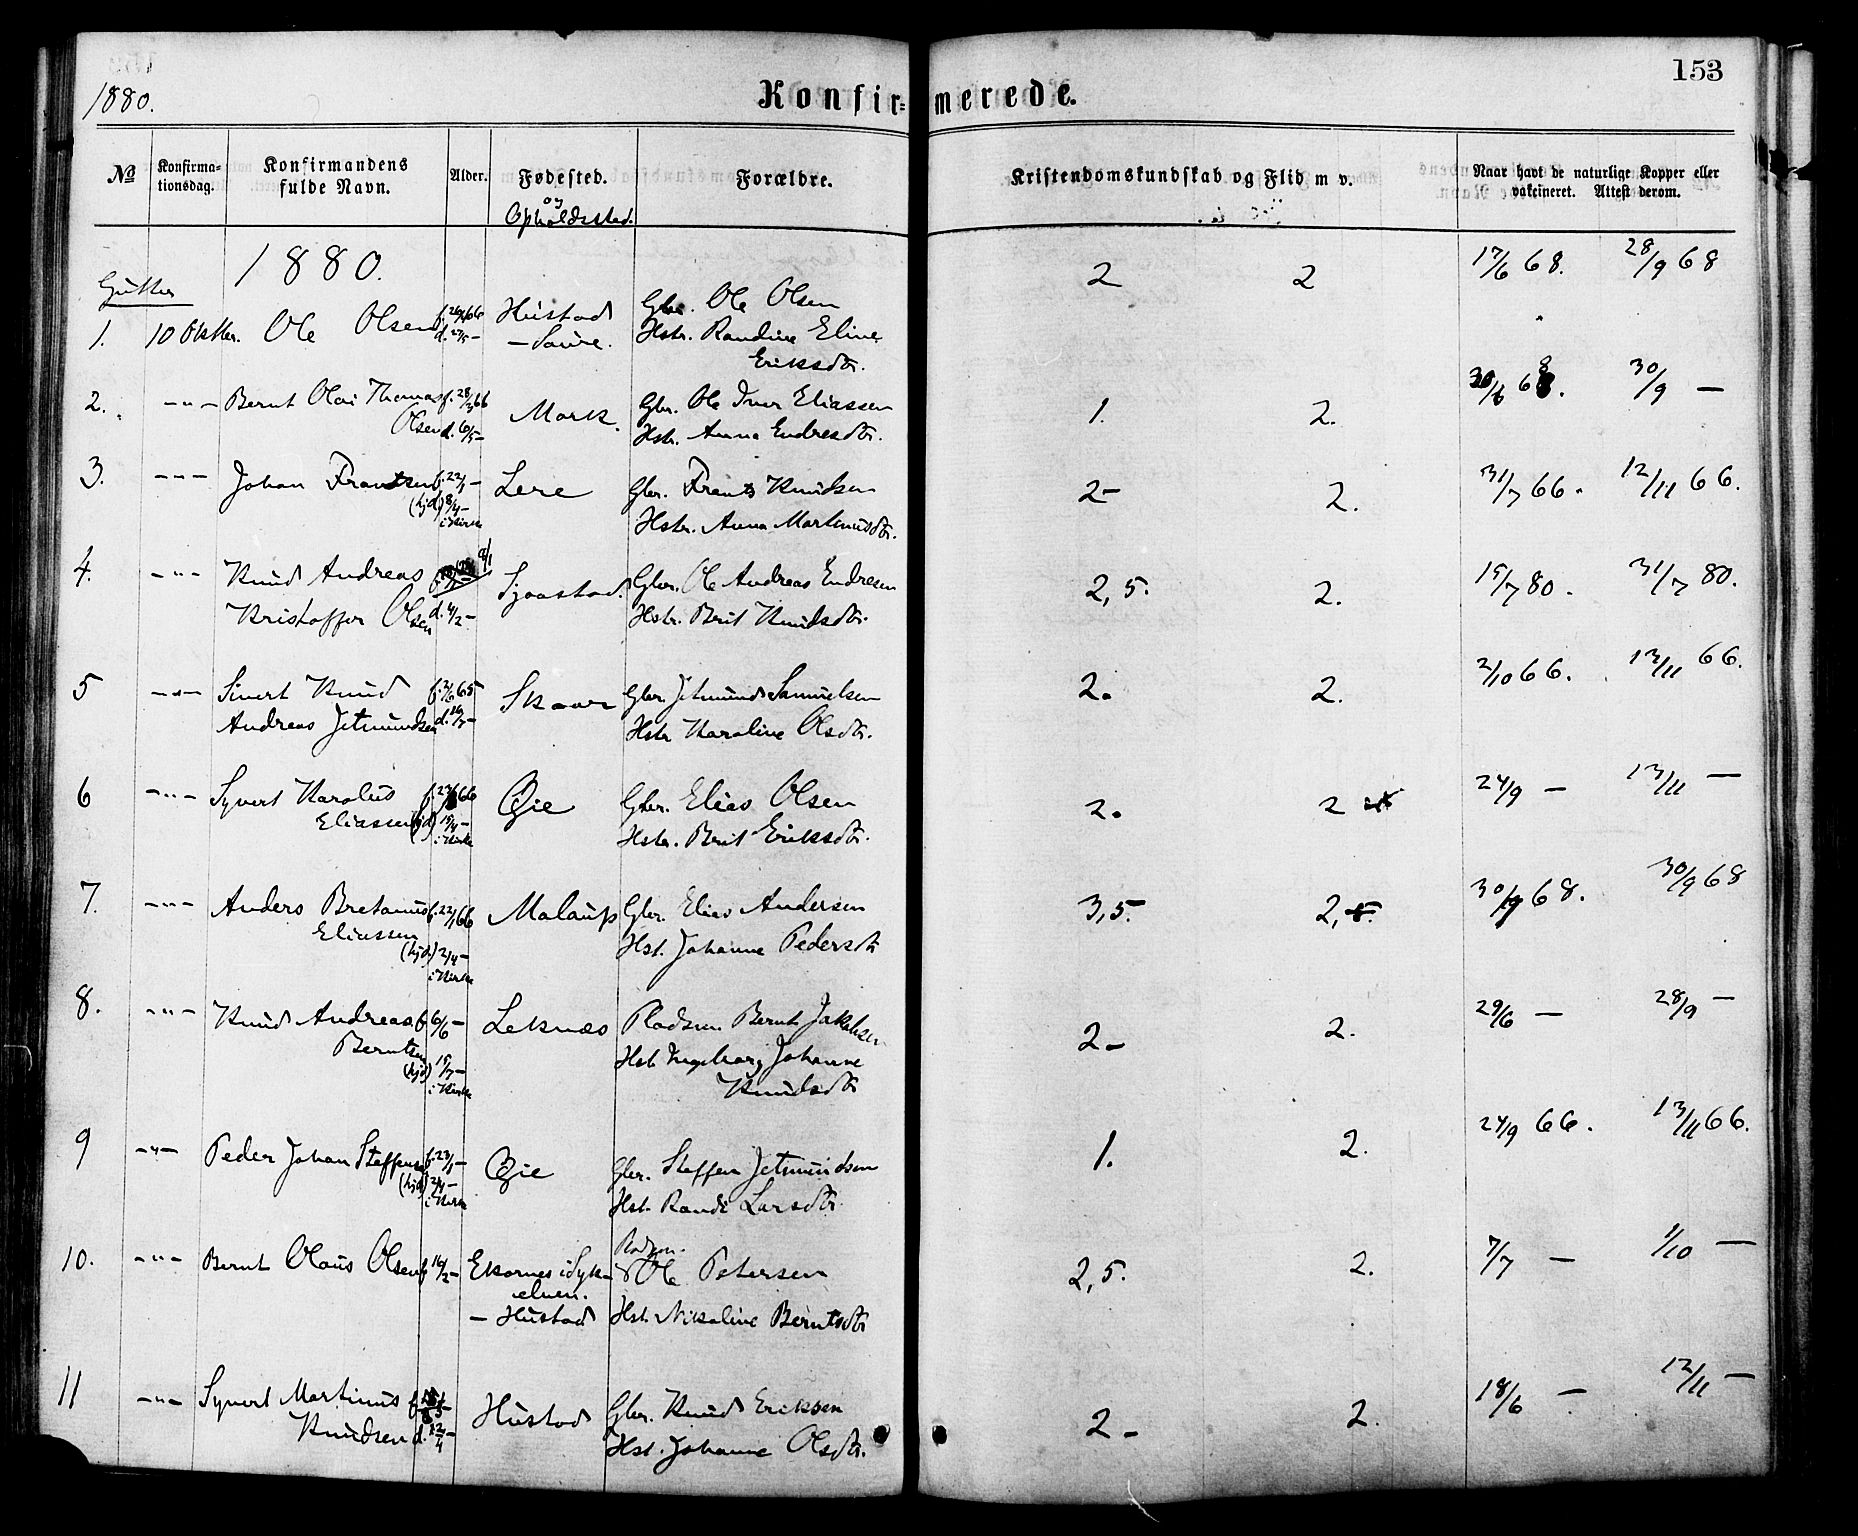 153
1880.
Konfir= merede.
No
Konfirma-
tionsdag.
Konfirmandens
fulde Navn.
Alder.
Fødested.
og
Opholdssted.
Forældre.
Kristendomskundskab og Flid m v.
Naar havt de naturlige Kopper eller
vakcineret. Attest derom.
1880.
Gutter
1. 10 Oktber. Ole Olsen Hustad Gbr. Ole Olsen 2 2 17/6 68. 28/9 68
d. 27/5 - - Saure. Hstr. Randine Eline
Eriksdtr.
2. - " - Bernt Olai Thomas f. 28/3 66 Mork. Gbr. Ole Iver Eliassen 1. 2. 30/6 68. 30/9 -
Olsen d. 6/5 - Hstr. Anna Endresdtr.
3. - " - Johan Frantsen f. 22/1 - Lere Gbr. Frants Knudsen 2- 2. 31/7 66. 12/11 66.
(hjd) 8/4 - Hstr. Anna Martinusdtr.
i Kirke
4. - " - Knud Andreas Sjaastad. Gbr. Ole Andreas Endresen 2,5. 2. 15/7 80. 31/7 80.
Kristoffer Olsen d. 4/2 - Hstr. Brit Knudsdtr.
5 - " - Sivert Knud f. 2/6 65 Skaar Gbr. Jetmund Samuelsen 2. 2. 2/10 66. 12/11 66.
Andreas Jetmundsen d. 16/7 - Hstr Karoline Olsdtr.
6 - " - Syvert Karolus Øie Gbr. Elias Olsen 2. 2 24/9 - 13/11 -
Eliassen (hjd) 15/4 - Hstr. Brit Eriksdtr.
i Kirke
7. - " - Anders Bretanus f. 22/1 66 Malaup Gbr. Elias Andersen 3,5. 2,5. 30/9 68. 30/9 68
Eliassen (hjd.) 2/4 - Hst. Johanne Pedersdtr
i Kirke
8. - " - Knud Andreas f. 6/6 - Leknæs Pladsm. Bernt Jakobsen 2- 2. 29/6 - 28/9 -
Berntsen (hjd) 15/7 - Hst. Ingeborg Johanne
i Kirke Knudsdtr
9 - " - Peder Johan Steffensen f. 23/1 - Øie Gbr. Steffen Jetmundsen 1. 2. 24/9 66. 13/11 66.
(hjd) 2/4 - Hst. Randi Larsdtr.
i Kirke
10. - " - Bernt Olaus Olsen f. 14/2 - Ekornes i Syk- Pladsm. Ole Petersen 2,5. 2. 7/7 - 1/10 -
elven.
- Hustad Hst. Nikoline Berntsdtr
11 - " - Syvert Martinus Hustad Gbr. Knud Eriksen 2- 2. 18/6 - 12/11 -
Knudsen d. 22/4 - Hst. Johanne Olsdtr.